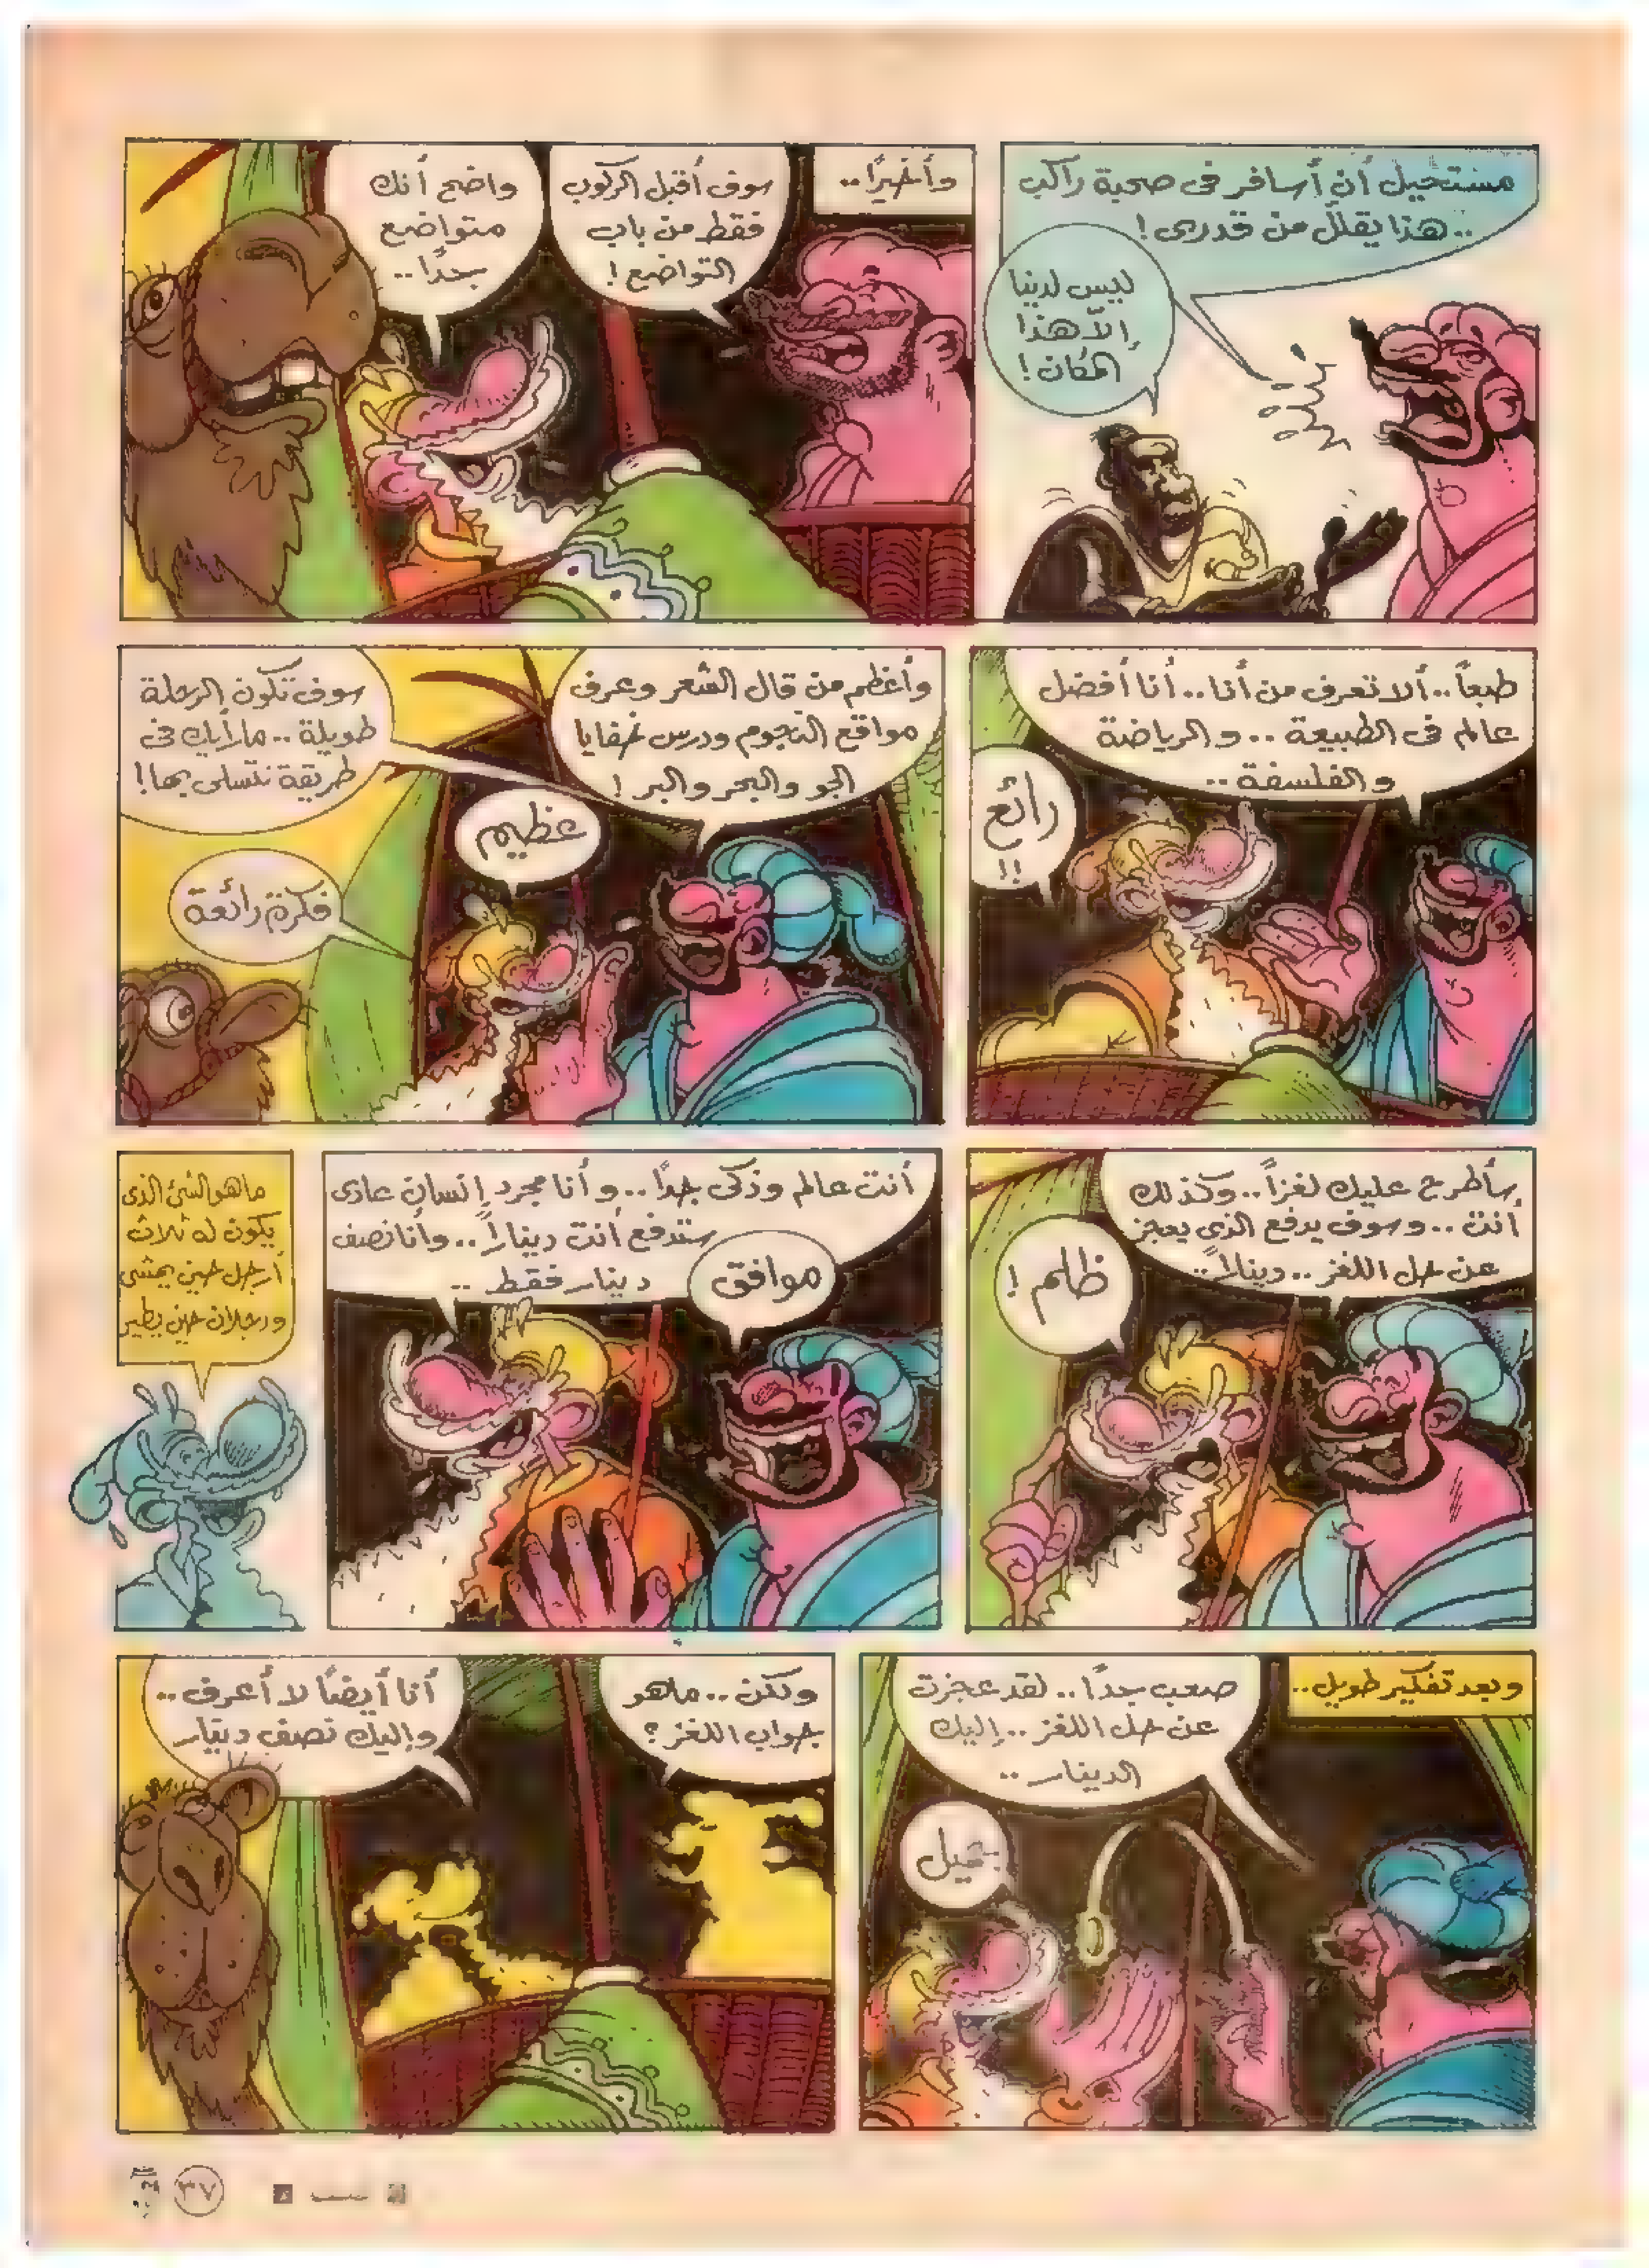 مستحيل أن أسافر فى صحبة راكب
.. هذا يقلل من قدرى !
ليس لدينا
إلا هذا
المكان !
وأخيرًا ..
سوف أقبل الركوب
فقط من باب
التواضع !
واضح أنك
متواضع
جدًا ..
طبعاً .. ألا تعرف من أنا .. أنا أفضل
عالم فى الطبيعة .. والرياضة
والفلسفة ..
رائع
!!
وأعظم من قال الشعر وعرف
مواقع النجوم ودرس خفايا
الجو والبحر والبر !
عظيم
سوف تكون الرحلة
طويلة .. ما رأيك فى
طريقة نتسلى بها !
فكرة رائعة
سأطرح عليك لغزاً .. وكذلك
أنت .. وسوف يدفع الذى يعجز
عن حل اللغز .. ديناراً ..
ظلم !
أنت عالم وذكى جدًا .. وأنا مجرد إنسان عادى
ستدفع أنت ديناراً .. وأنا نصف
دينار فقط ..
موافق
ما هو الشئ الذى
يكون له ثلاث
أرجل حين يمشى
ورجلان حين يطير
وبعد تفكير طويل ..
صعب جدًا .. لقد عجزت
عن حل اللغز .. إليك
الدينار ..
جميل
ولكن .. ما هو
جواب اللغز ؟
أنا أيضًا لا أعرف ..
وإليك نصف دينار
٣٧